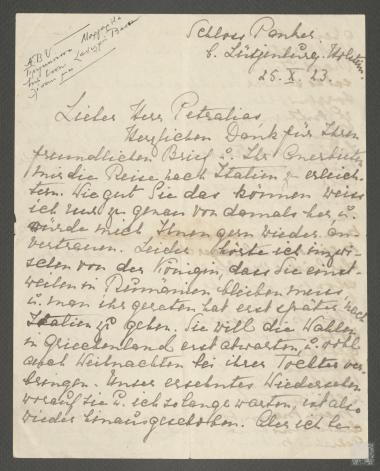 Schloss Panker
b. Lütjenburg, Holstein.
25. X. 23.
Lieber Herr Petralias,
Herzlichen Dank für Ihren
freundlichen Brief u. Ihr Anerbieten
mir die Reise nach Italien zu erleich-
tern. Wie gut Sie das können weiss
ich nur zu genau von damals her, u.
würde mich Ihnen gern wieder an-
vertrauen. Leider hörte ich inzwi-
schen von der Königin, dass Sie einst-
weilen in Rumänien bleiben muss
u. man ihr geraten hat erst später nach
Italien zu gehen. Sie will die Wahlen
in Griechenland erst abwarten, u. wohl
auch Weihnachten bei ihrer Tochter ver-
bringen. Unser ersehntes Wiedersehen
worauf sie u. ich so lange warten, ist also
wieder hinausgeschoben. Aber ich be-